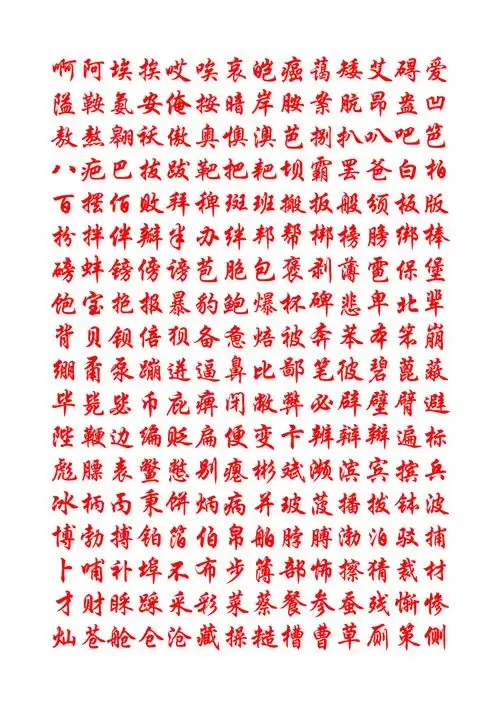 啊阿埃挨哎唉哀皑癌蔼矮艾碍爱
隘鞍氨安俺按暗岸胺案肮昂盎凹
敖熬翱袄傲奥懊澳芭捌扒叭吧笆
八疤巴拔跋靶把耙坝霸罢爸白柏
百摆佰败拜稗斑班搬扳般颁板版
扮拌伴瓣半办绊邦帮梆榜膀绑棒
磅蚌镑傍谤苞胞包褒剥薄雹保堡
饱宝抱报暴豹鲍爆杯碑悲卑北辈
背贝钡倍狈备惫焙被奔苯本笨崩
绷甭泵蹦迸逼鼻比鄙笔彼碧蓖蔽
毕毙毖币庇痹闭敝弊必辟壁臂避
陛鞭边编贬扁便变卞辨辩辫遍标
彪膘表鳖憋别瘪彬斌濒滨宾摈兵
冰柄丙秉饼炳病并玻菠播拨钵波
博勃搏铂箔伯帛舶脖膊渤泊驳捕
卜哺补埠不布步簿部怖擦猜裁材
才财睬踩采彩菜蔡餐参蚕残惭惨
灿苍舱仓沧藏操糙槽曹草厕策侧